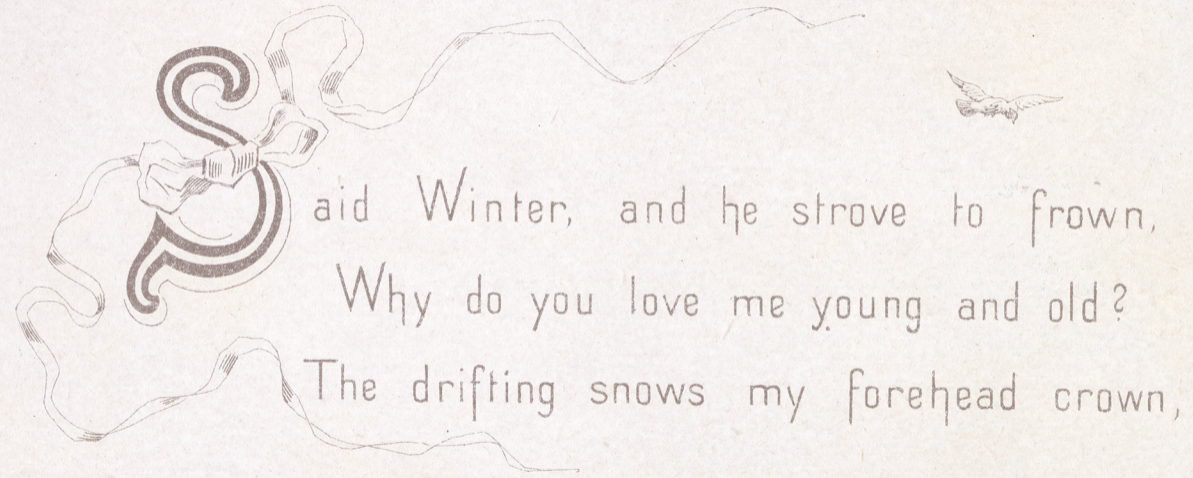 Said Winter, and he strove to frown,
Why do you love me young and old?
The drifting snows my forehead crown,